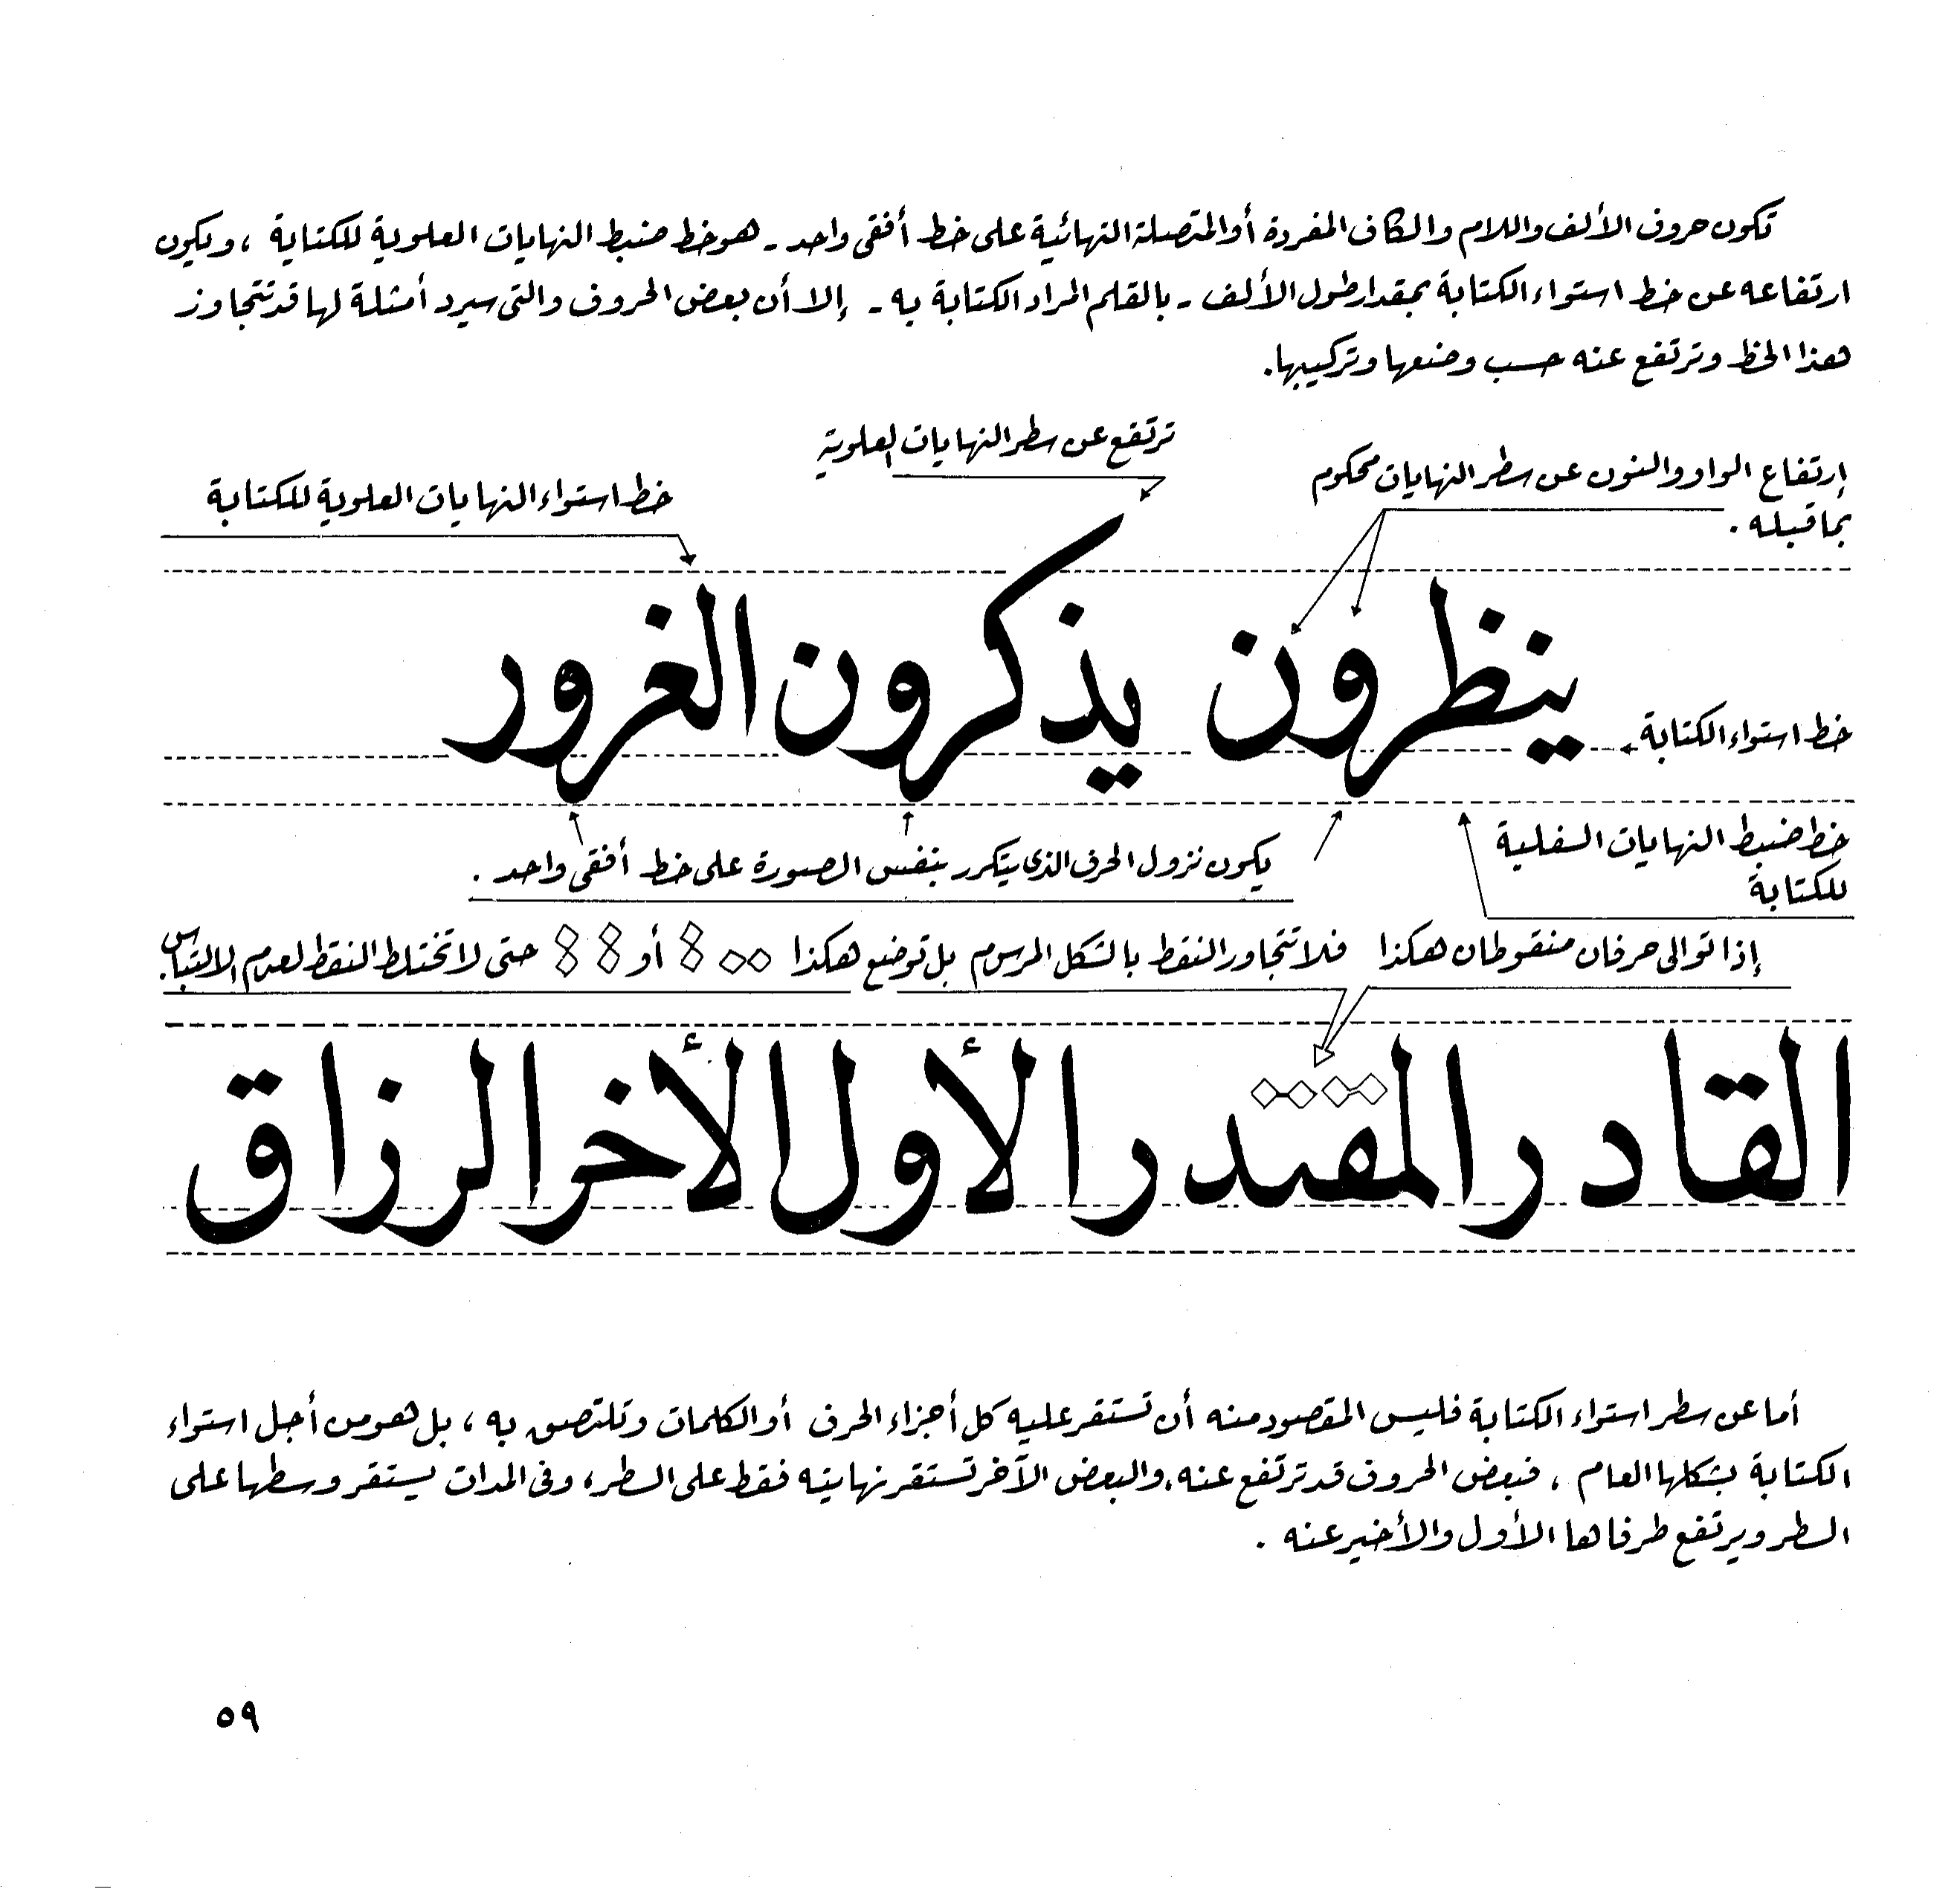 تكون حروف الألف واللام والكاف المفردة أو المتصلة النهائية على خط أفقى واحد - هو خط ضبط النهايات العلوية للكتابة ، ويكون
ارتفاعه عن خط استواء الكتابة بمقدار طول الألف - بالقلم المراد الكتابة به - إلا أن بعض الحروف والتى سيرد أمثلة لها قد تتجاوز
هذا الخط وترتفع عنه حسب وضعها وتركيبها .
ترتفع عن سطر النهايات العلوية
إرتفاع الواو والنون عن سطر النهايات محكوم
بما قبله .
خط استواء النهايات العلوية للكتابة
ينظرون يذكرون الغرور
خط استواء الكتابة
خط ضبط النهايات السفلية
للكتابة
يكون نزول الحرف الذى يتكرر بنفس الصورة على خط أفقى واحد .
إذا توالى حرفان منقوطان هكذا فلا تتجاور النقط بالشكل المرسوم بل توضع هكذا أو حتى لا تختلط النقط لعدم الالتباس .
القادر المقتدر الأول الأخر الرزاق
أما عن سطر استواء الكتابة فليس المقصود منه أن تستقر عليه كل أجزاء الحرف أو الكلمات وتلتصق به ، بل هو من أجل استواء
الكتابة بشكلها العام ، فبعض الحروف قد ترتفع عنه ، والبعض الآخر تستقر نهايته فقط على السطر ، وفى المدات يستقر وسطها على
السطر ويرتفع طرفاها الأول والأخير عنه .
٥٩